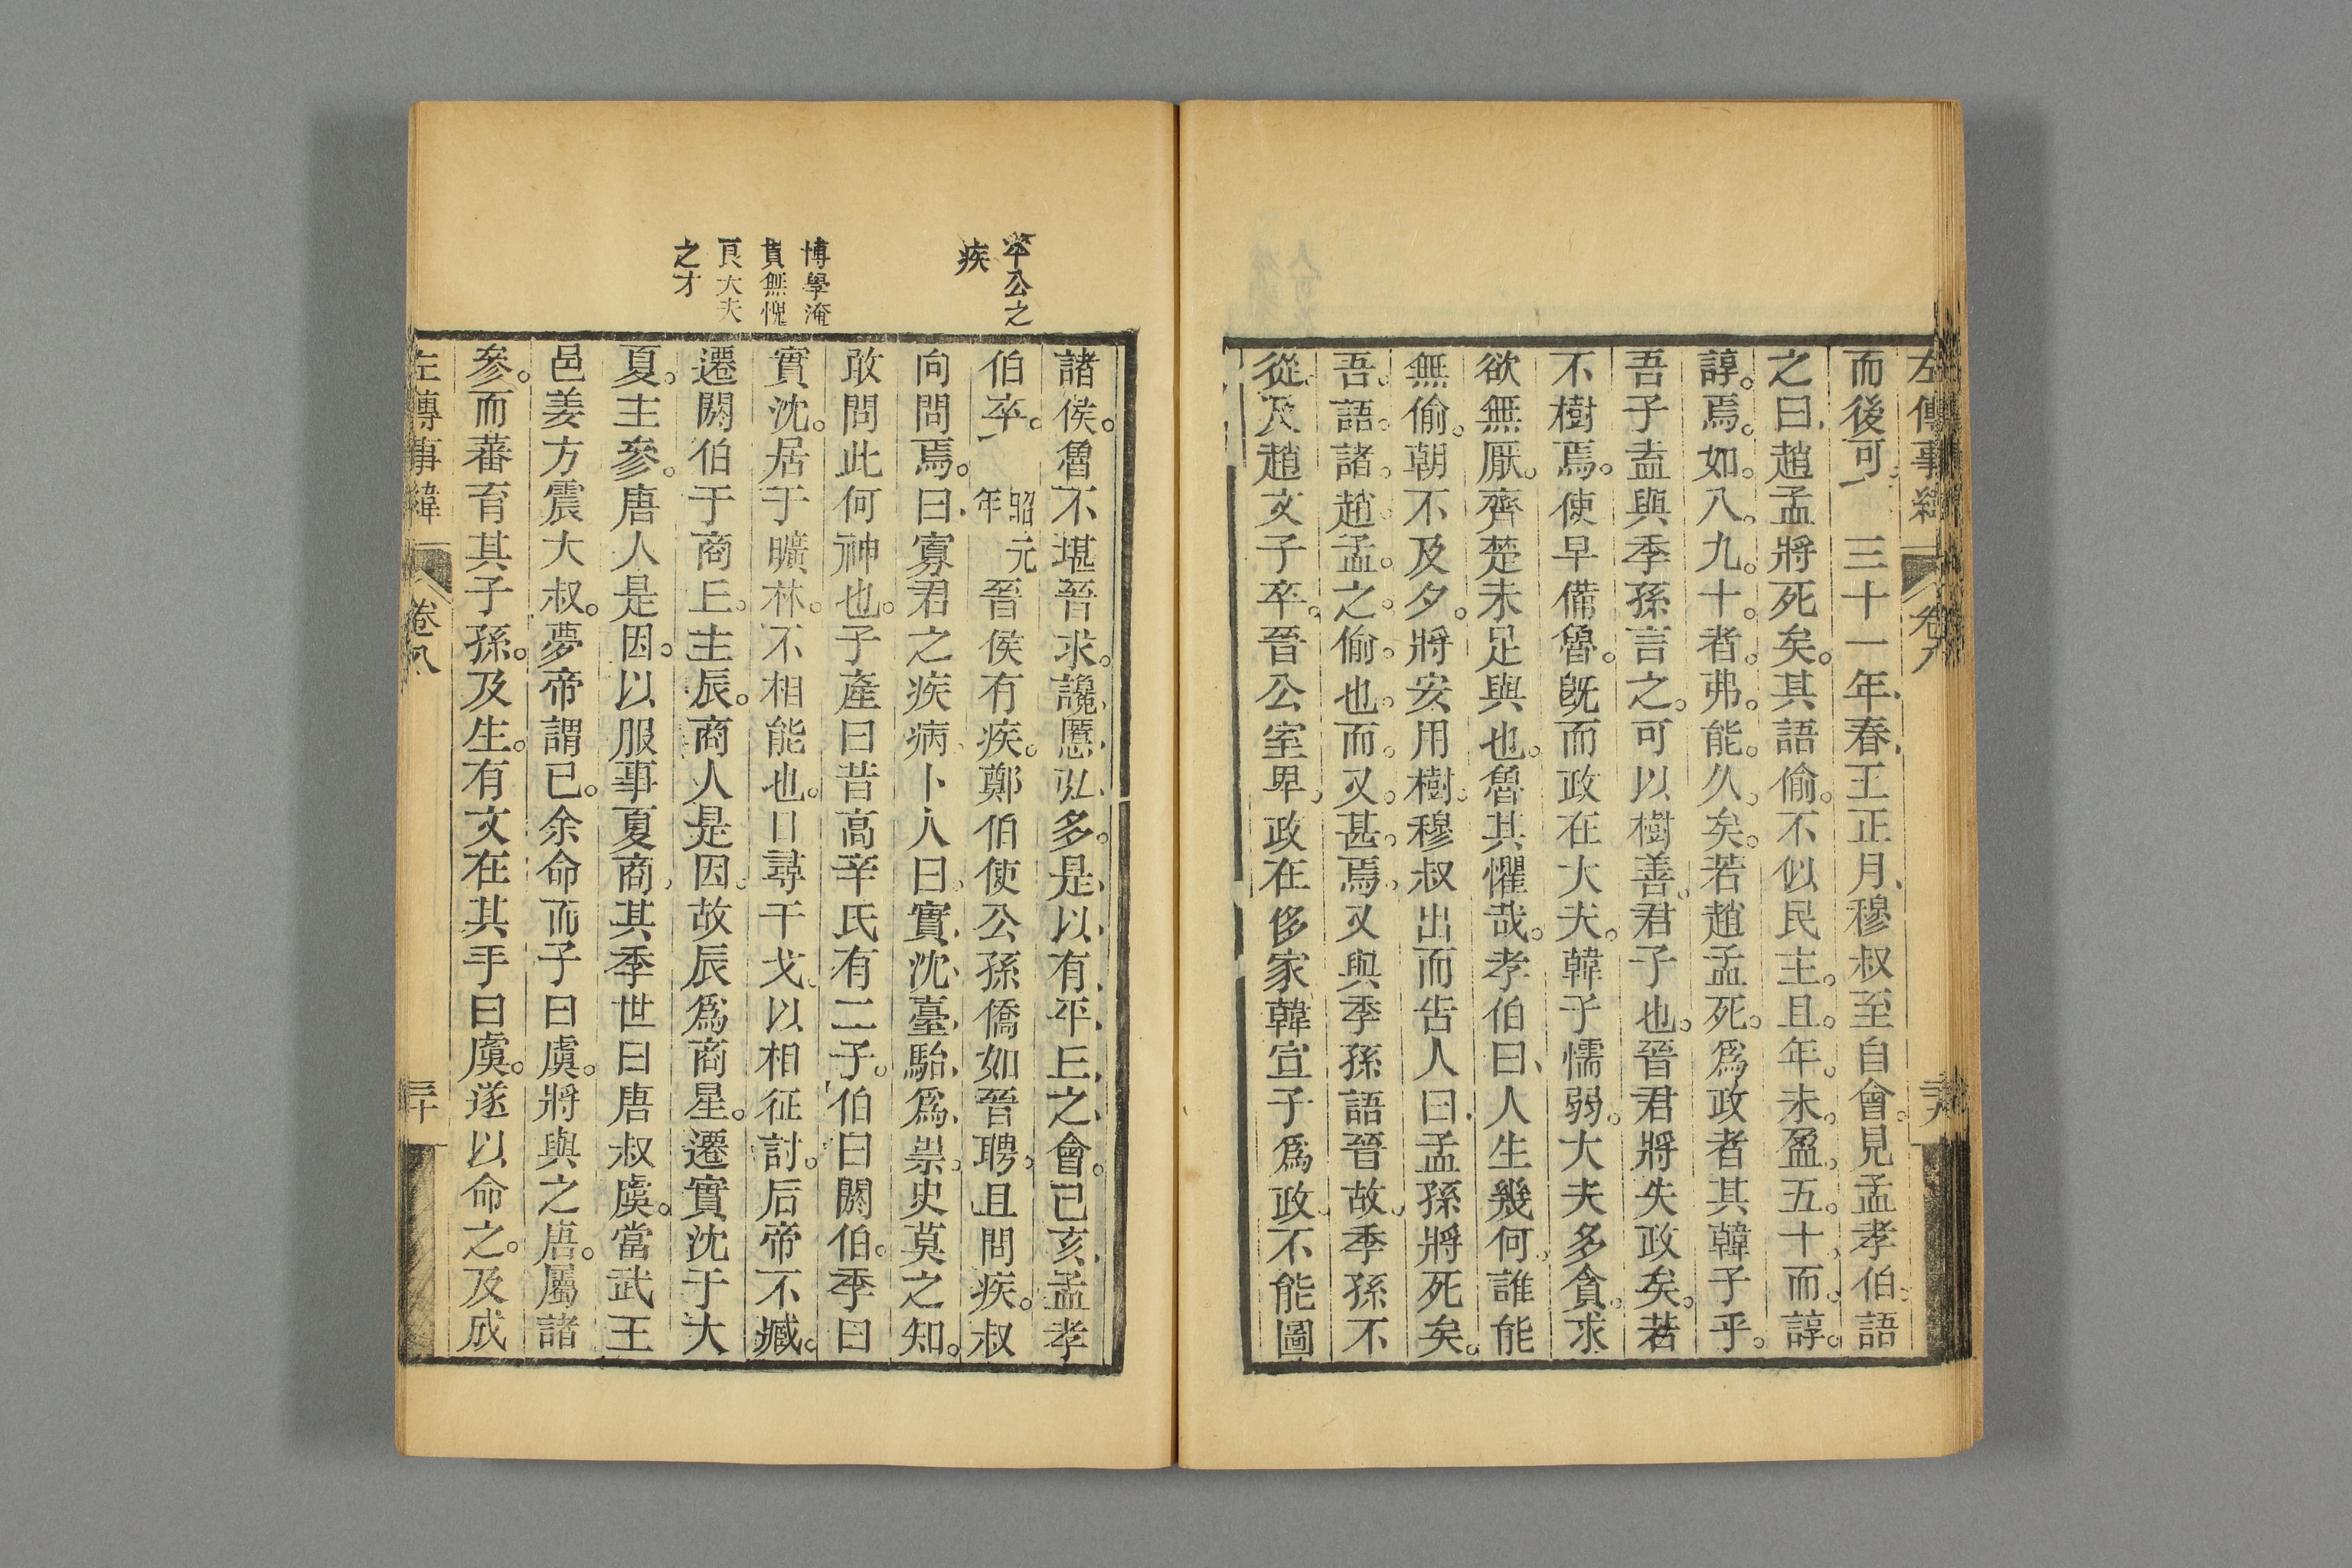 左傳事緯
卷八
而後可三十一年春王正月穆叔至自會見孟孝伯語
之曰趙孟將死矣其語偷不似民主且年未盈五十而諄
諄焉如八九十者弗能久矣若趙孟死爲政者其韓子乎
吾子盍與季孫言之可以樹善君子也晉君將失政矣若
不樹焉使早備魯旣而政在大夫韓子懦弱大夫多貪求
欲無厭齊楚未足與也魯其懼哉孝伯曰人生幾何誰能
無偷朝不及夕將安用樹穆叔出而告人曰孟孫將死矣
吾語諸趙孟之偷也而又甚焉又與季孫語晉故季孫不
從及趙文子卒晉公室卑政在侈家韓宣子爲政不能圖
諸侯魯不堪晉求讒慝弘多是以有平丘之會己亥孟孝
伯卒昭元年晉侯有疾鄭伯使公孫僑如晉聘且問疾叔
向問焉曰寡君之疾病卜人曰實沈臺駘爲祟史莫之知
敢問此何神也子產曰昔高辛氏有二子伯曰閼伯季曰
實沈居于曠林不相能也日尋干戈以相征討后帝不臧
遷閼伯于商丘主辰商人是因故辰爲商星遷實沈于大
夏主參唐人是因以服事夏商其季世曰唐叔虞當武王
邑姜方震大叔夢帝謂已余命而子曰虞將與之唐屬諸
參而蕃育其子孫及生有文在其手曰虞遂以命之及成
左傳事緯
卷八
三十
平公之
疾
博學淹
貫無愧
良大夫
之才